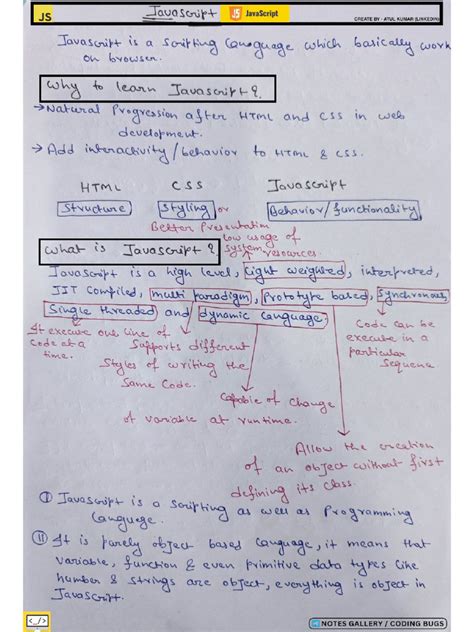 JS
Javascript
JS JavaScript
CREATE BY - ATUL KUMAR (LINKEDIN)
Javascript is a Scripting Language which basically work
on browser.
Why to learn Javascript?
→ Natural Progression after HTML and CSS in web
development.
→ Add interactivity/behavior to HTML & CSS.
HTML CSS Javascript
Structure Styling or Behavior/functionality
Better Presentation
low usage of
system resources.
What is Javascript?
Javascript is a high level, Light weighted, interpreted,
JIT Compiled, multi paradigm, Prototype based, Synchronous,
Single threaded and dynamic Language.
It execute one line of
Code at a
time.
Supports different
Styles of writing the
Same Code.
Code can be
execute in a
particular
Sequence
Capable of Change
of variable at runtime.
Allow the creation
of an object without first
defining its class.
I Javascript is a Scripting as well as Programming
Language.
II It is purely object based Language, it means that
variable, function & even primitive data types like
number & strings are object, everything is object in
Javascript.
<_/>
NOTES GALLERY / CODING BUGS